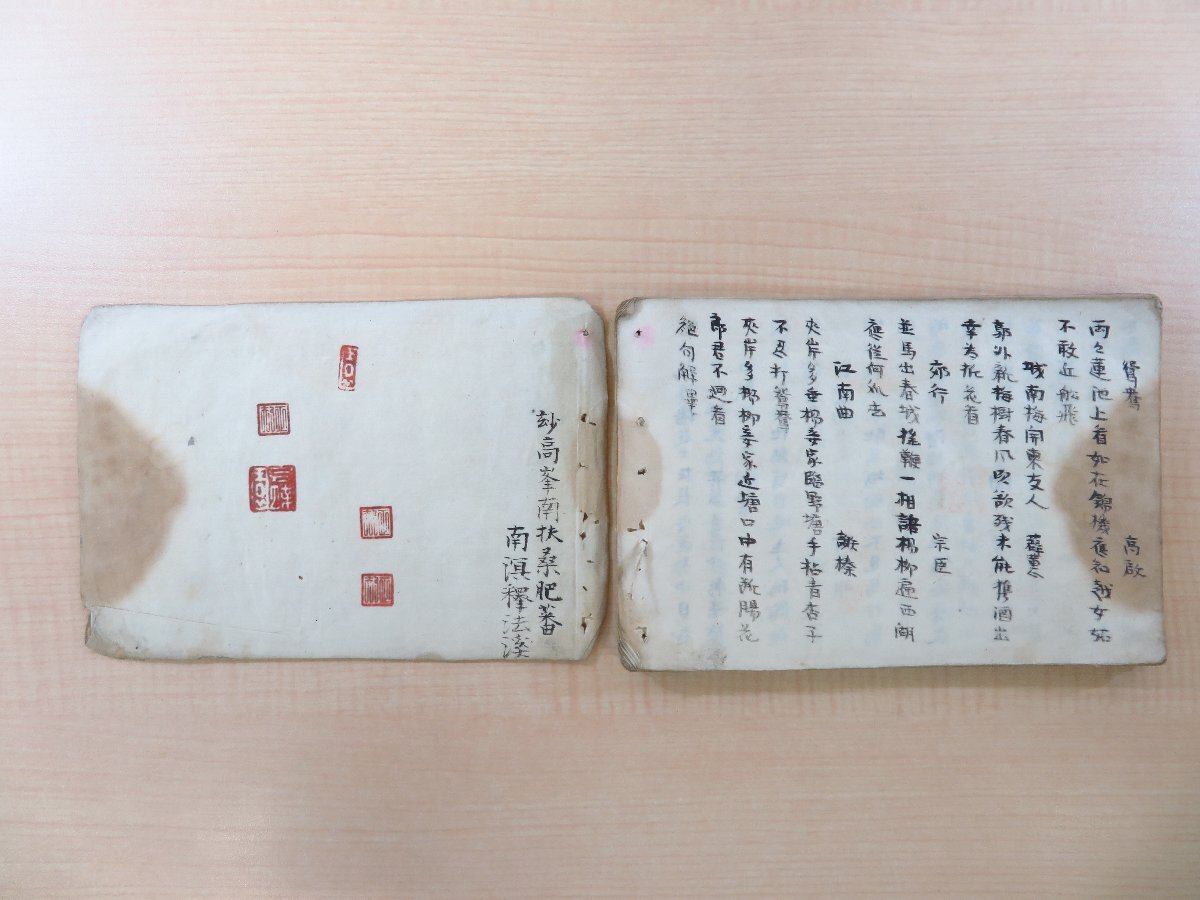 鴛鴦 高啟
両々蓮池上看如在錦機應知越女妬
不敢近船飛
城南梅開東友人 薛蕙
郭外新梅樹春風吹欲残未能携酒出
幸為折花看
郊行 宗臣
並馬出春城揺鞭一相語楊柳遍西湖
應従何処去
江南曲 謝榛
夾岸多垂楊妾家臨野塘手拈青杏子
不忍打鴛鴦
夾岸多楊柳妾家近塘口中有断腸花
郎君不廻看
絶句解畢
玅高峯南扶桑肥蕃
南溟釋法